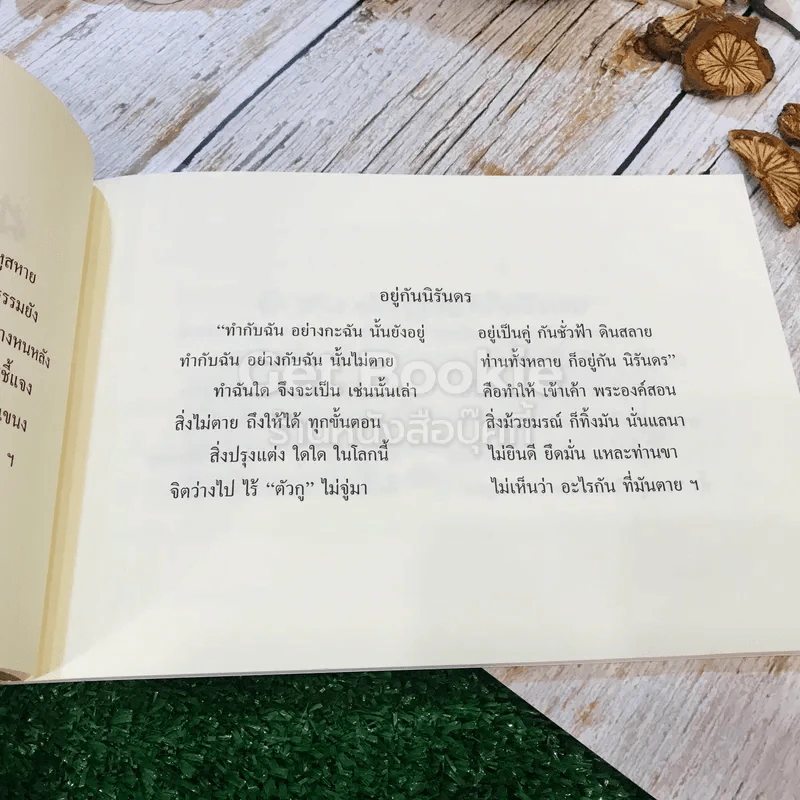 ูสหาย
รรมยัง
างหนหลัง
ชี้แจง
แขนง
ฯ
อยู่กันนิรันดร
“ทำกับฉัน อย่างกะฉัน นั้นยังอยู่ อยู่เป็นคู่ กันชั่วฟ้า ดินสลาย
ทำกับฉัน อย่างกับฉัน นั้นไม่ตาย ท่านทั้งหลาย ก็อยู่กัน นิรันดร”
ทำฉันใด จึงจะเป็น เช่นนั้นเล่า คือทำให้ เข้าเค้า พระองค์สอน
สิ่งไม่ตาย ถึงให้ได้ ทุกขั้นตอน สิ่งม้วยมรณ์ ก็ทิ้งมัน นั่นแลนา
สิ่งปรุงแต่ง ใดใด ในโลกนี้ ไม่ยินดี ยึดมั่น แหละท่านขา
จิตว่างไป ไร้ “ตัวกู” ไม่จู่มา ไม่เห็นว่า อะไรกัน ที่มันตาย ฯ
Get Bookie
ร้านหนังสือบุ๊คกี้